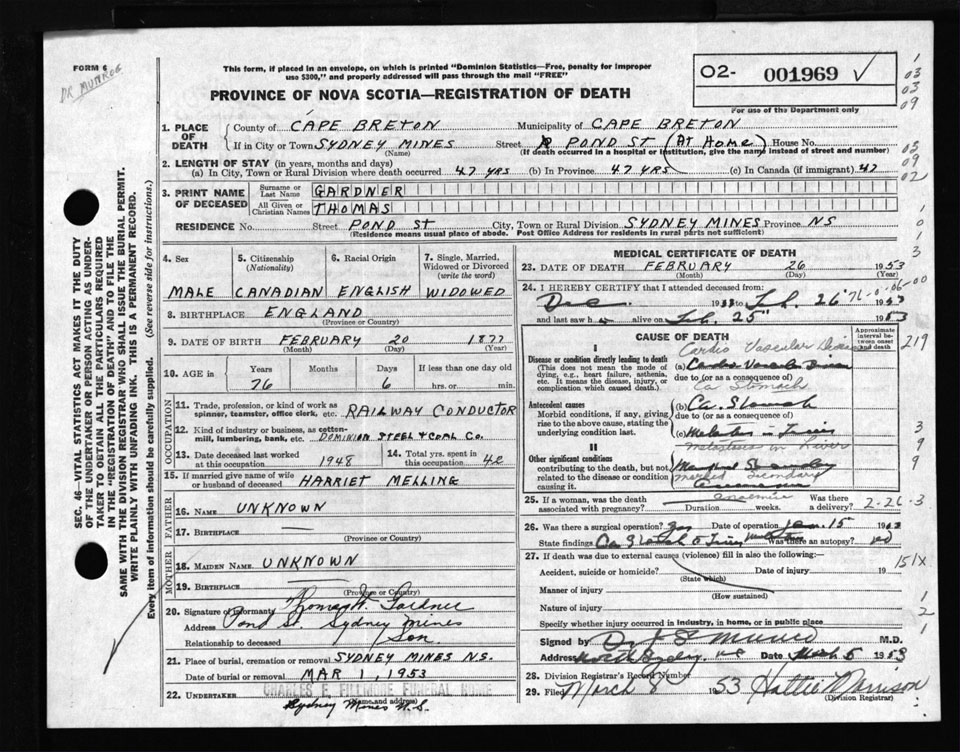 FORM 6
DR MUNROE
This form, if placed in an envelope, on which is printed "Dominion Statistics—Free, penalty for improper
use $300," and properly addressed will pass through the mail "FREE"
PROVINCE OF NOVA SCOTIA—REGISTRATION OF DEATH
02- 001969 ✓
For use of the Department only
1. PLACE OF DEATH
County of CAPE BRETON Municipality of CAPE BRETON
If in City or Town SYDNEY MINES Street POND ST (AT HOME) House No.
(Name) (If death occurred in a hospital or institution, give the name instead of street and number)
2. LENGTH OF STAY (in years, months and days)
(a) In City, Town or Rural Division where death occurred 47 YRS (b) In Province 47 YRS (c) In Canada (if immigrant) 47
3. PRINT NAME OF DECEASED
Surname or Last Name GARDNER
All Given or Christian Names THOMAS
RESIDENCE No. Street POND ST City, Town or Rural Division SYDNEY MINES Province NS
(Residence means usual place of abode. Post Office Address for residents in rural parts not sufficient)
SEC. 46—VITAL STATISTICS ACT MAKES IT THE DUTY
OF THE UNDERTAKER OR PERSON ACTING AS UNDER-
TAKER TO OBTAIN ALL THE PARTICULARS REQUIRED
IN THE "REGISTRATION OF DEATH" AND TO FILE THE
SAME WITH THE DIVISION REGISTRAR WHO SHALL ISSUE THE BURIAL PERMIT.
WRITE PLAINLY WITH UNFADING INK. THIS IS A PERMANENT RECORD.
Every item of information should be carefully supplied. (See reverse side for instructions.)
4. Sex
MALE
5. Citizenship
(Nationality)
CANADIAN
6. Racial Origin
ENGLISH
7. Single, Married,
Widowed or Divorced
(write the word)
WIDOWED
8. BIRTHPLACE ENGLAND
(Province or Country)
9. DATE OF BIRTH FEBRUARY 20 1877
(Month) (Day) (Year)
10. AGE Years Months Days If less than one day old
76 6 hrs. or min.
OCCUPATION
11. Trade, profession, or kind of work as
spinner, teamster, office clerk, etc. RAILWAY CONDUCTOR
12. Kind of industry or business, as cotton-
mill, lumbering, bank, etc. DOMINION STEEL & COAL CO.
13. Date deceased last worked
at this occupation 1948
14. Total yrs. spent in
this occupation 42
15. If married give name of wife
or husband of deceased HARRIET MELLING
FATHER
16. NAME UNKNOWN
17. BIRTHPLACE
(Province or Country)
MOTHER
18. MAIDEN NAME UNKNOWN
19. BIRTHPLACE
(Province or Country)
20. Signature of informant Thomas W. Gardner
Address Pond St. Sydney Mines
Relationship to deceased Son
21. Place of burial, cremation or removal SYDNEY MINES N.S.
Date of burial or removal MAR 1, 1953
22. UNDERTAKER CHARLES E. FILLMORE FUNERAL HOME
(Name and address)
Sydney Mines N.S.
MEDICAL CERTIFICATE OF DEATH
23. DATE OF DEATH FEBRUARY 26 1953
(Month) (Day) (Year)
24. I HEREBY CERTIFY that I attended deceased from:
Dec to Feb. 26 1953
and last saw h alive on Feb. 25 1953
CAUSE OF DEATH
Approximate interval between onset and death
I
Disease or condition directly leading to death
(This does not mean the mode of
dying, e.g., heart failure, asthenia,
etc. It means the disease, injury, or
complication which caused death.)
Cardio Vascular Disease
(a) Cardio Vascular Disease
due to (or as a consequence of)
Ca Stomach
Antecedent causes
Morbid conditions, if any, giving
rise to the above cause, stating the
underlying condition last.
(b) Ca. Stomach
due to (or as a consequence of)
(c)
Metastases in Liver
II
Other significant conditions
contributing to the death, but not
related to the disease or condition
causing it.
Marked Secondary
anaemia
25. If a woman, was the death
associated with pregnancy? Duration weeks. Was there
a delivery?
26. Was there a surgical operation? yes Date of operation 15 19
State findings Ca Stomach Was there an autopsy? no
27. If death was due to external causes (violence) fill in also the following:—
Accident, suicide or homicide? Date of injury 19
(State which)
Manner of injury
(How sustained)
Nature of injury
Specify whether injury occurred in industry, in home, or in public place
Signed by Dr M.D.
Address North Sydney, NS Date March 5 1953
28. Division Registrar's Record Number
29. Filed March 8 1953 Hattie Morrison
(Division Registrar)
1
03
03
09
03
09
02
1
0
1
3
76-0-06-00
219
3
9
9
2-26-3
151X
1
2
1